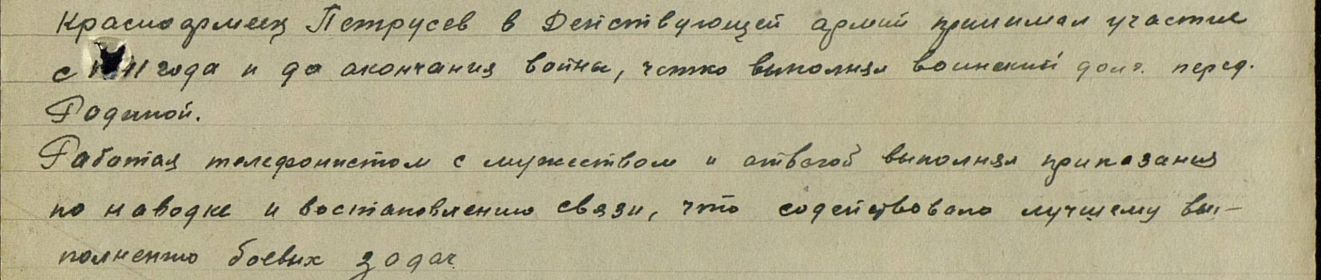 Красноармеец Петрусев в Действующей армии принимал участие
с 1941 года и до окончания войны, четко выполнял воинский долг перед
Родиной.
Работая телефонистом с мужеством и отвагой выполнял приказания
по наводке и востановлению связи, что содействовало лучшему вы-
полнению боевых задач